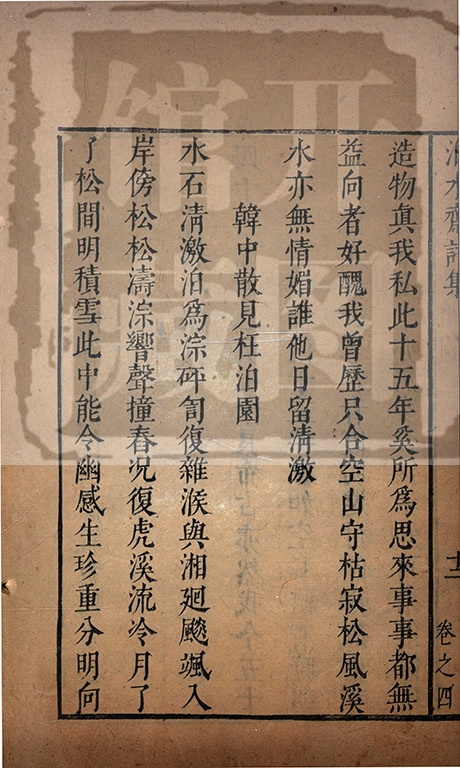 造物真我私此十五年奚所為思來事事都無
益向者好醜我曾歷只合空山守枯寂松風溪
水亦無情媚誰他日留清激
韓中散見枉泊園
水石清激泊爲淙砰訇復雜㵎與湘廻飈颯入
岸傍松松濤淙響聲撞舂況復虎溪流冷月了
了松間明積雪此中能令幽感生珍重分明向
十二
卷之四